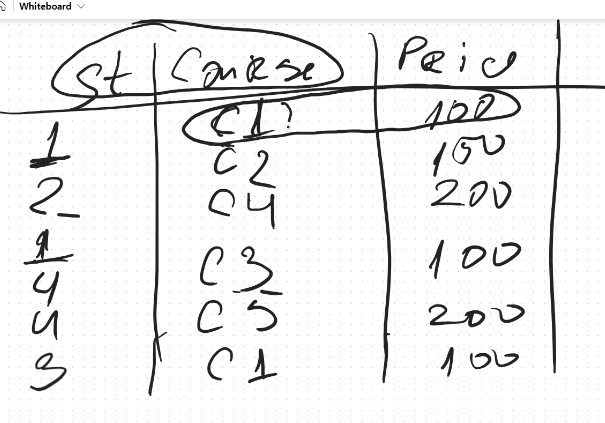 Whiteboard
St Course Price
C1? 100
1 C2 100
2 C4 200
1 C3 100
4
4 C5 200
3 C1 100